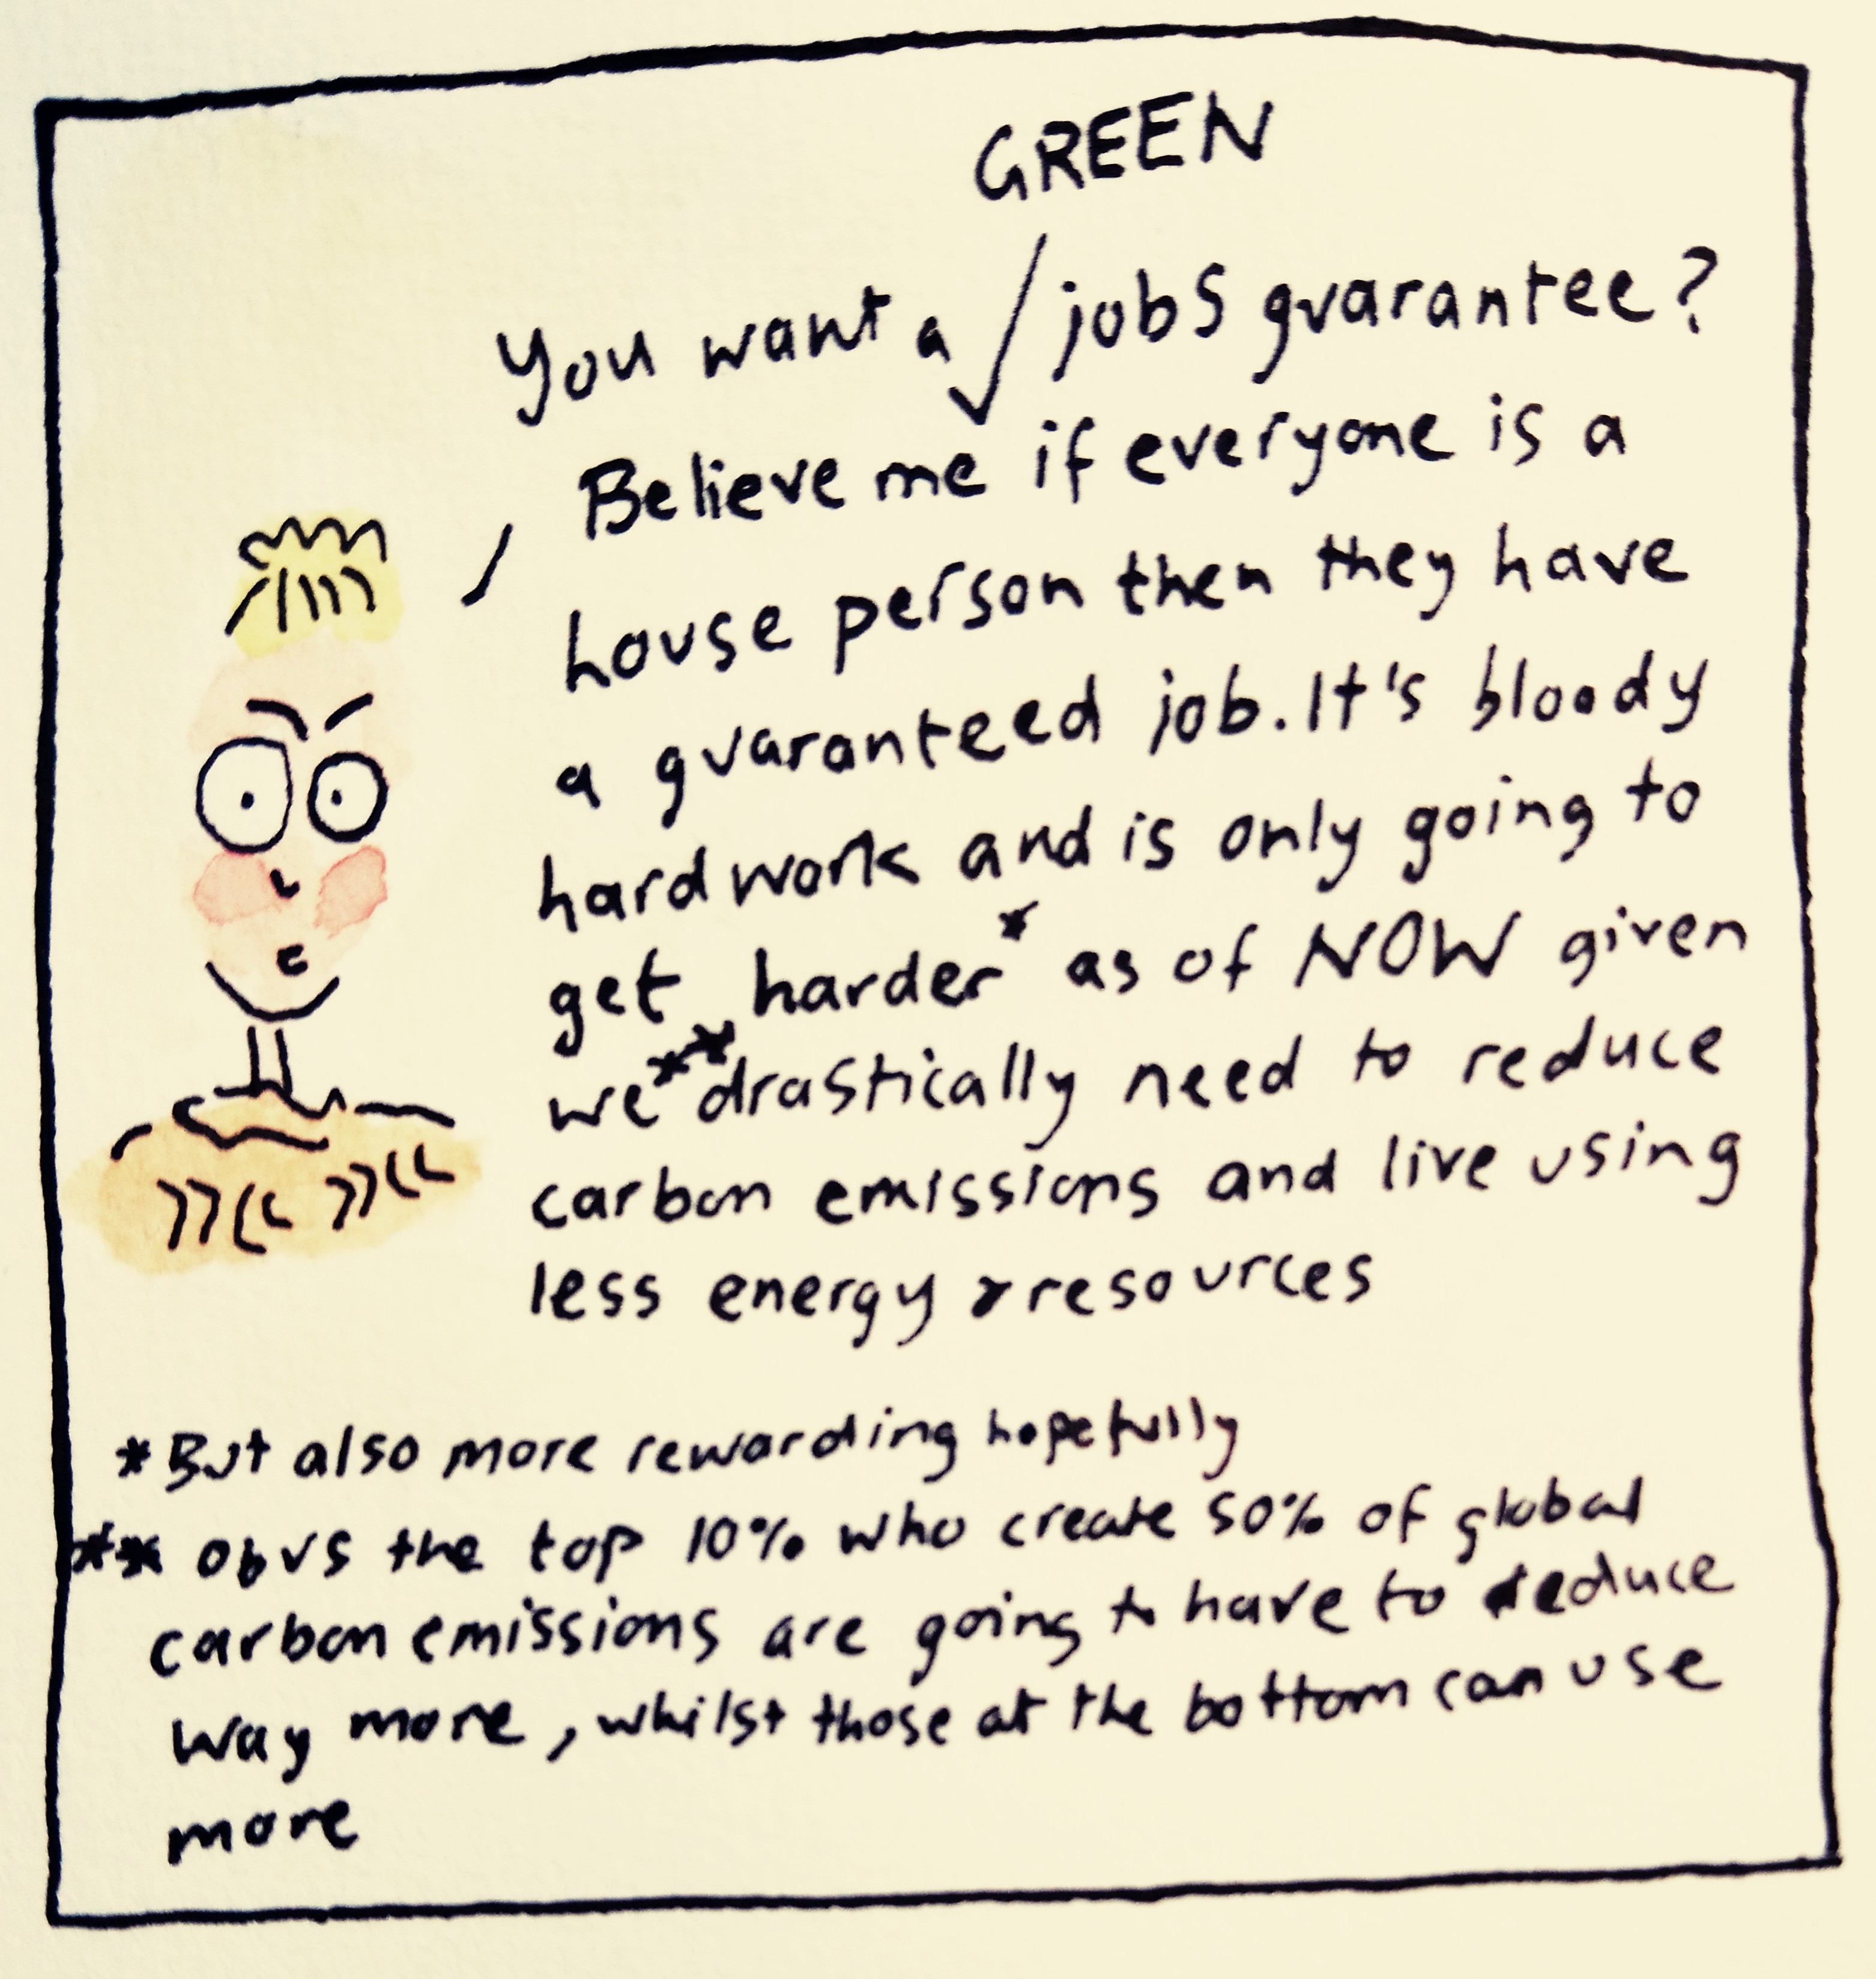 GREEN
You want a jobs guarantee?
Believe me if everyone is a
house person then they have
a guaranteed job. It's bloody
hard work and is only going to
get harder* as of NOW given
we** drastically need to reduce
carbon emissions and live using
less energy & resources
*But also more rewarding hopefully
** obvs the top 10% who create 50% of global
carbon emissions are going to have to reduce
way more, whilst those at the bottom can use
more